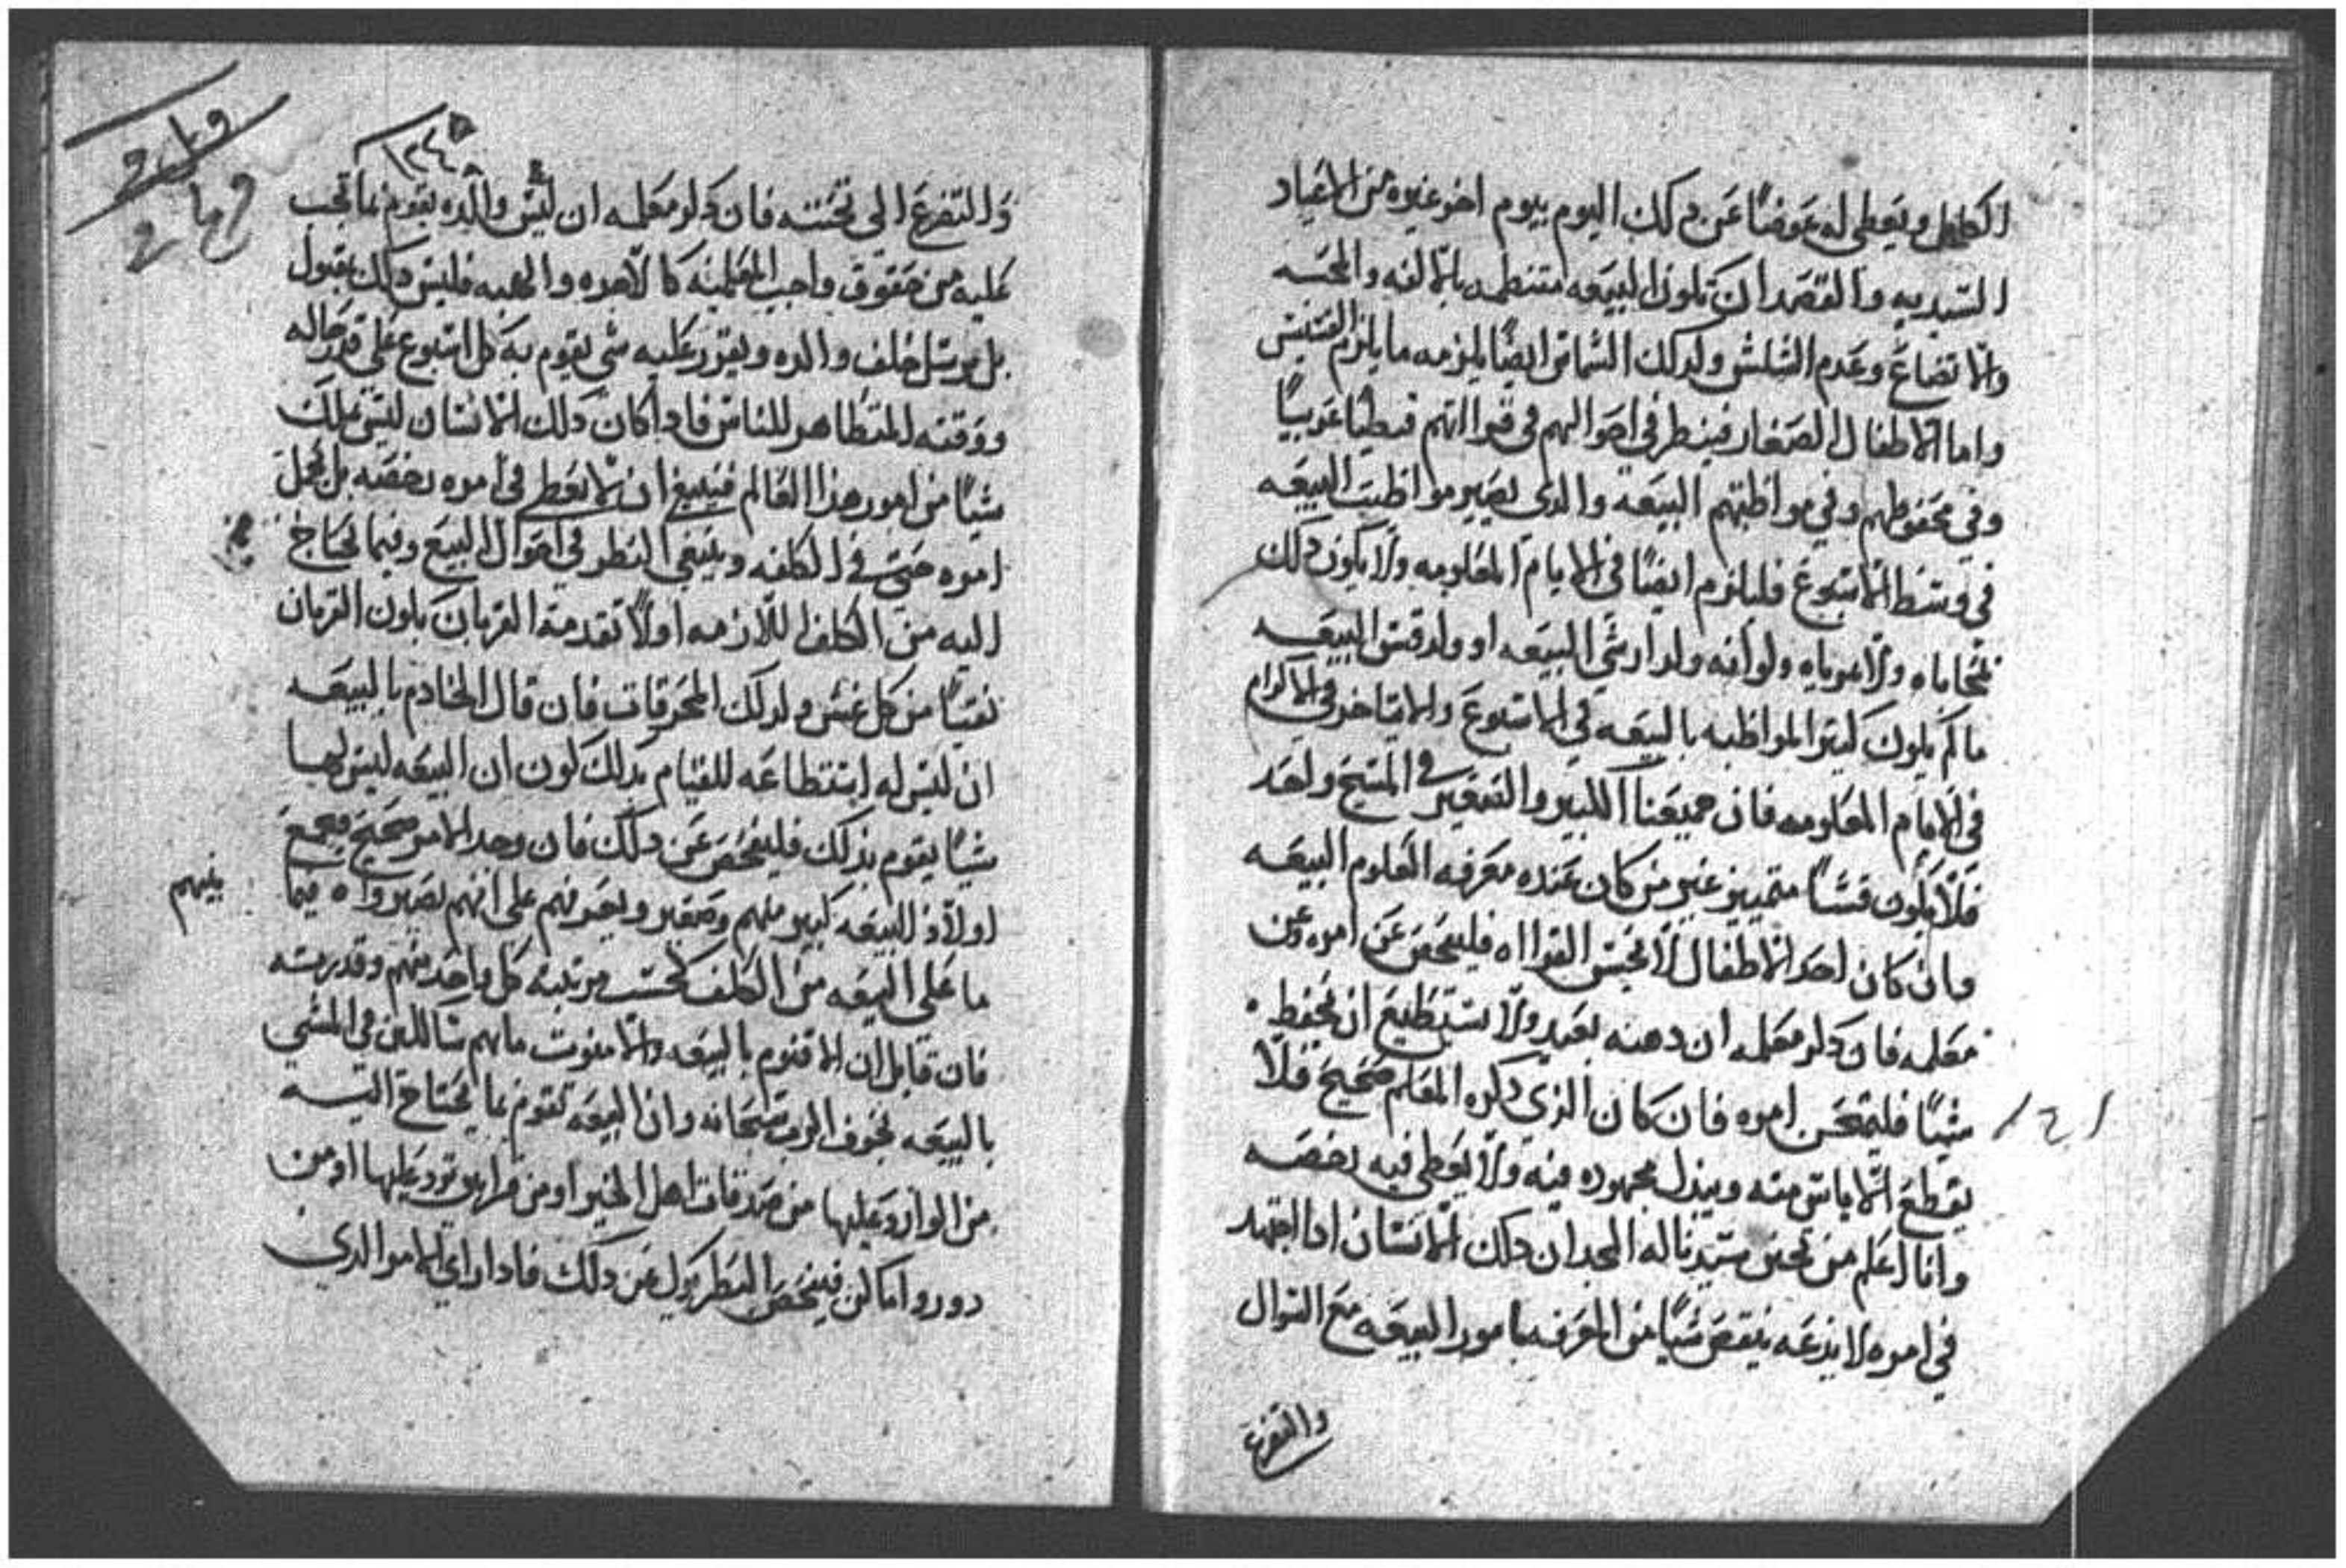 الكامل ويعطي له عوضًا عن دلك اليوم بيوم اخر غيره من الاعياد
السيديه والقصد ان تكون البيعه منتظمه بالالفه والمحبه
والاتضاع وعدم الشلش ولدلك الشماس ايضًا يلزمه ما يلزم القسيس
واما الاطفال الصغار فينطر في احوالهم في قرااتهم قبطيًا عربيًا
وفي محفوظهم وفي مواظبتهم البيعه والدى يصير مواظبت البيعه
في وسط الاسبوع فليلزم ايضًا في الايام المعلومه ولا يكون دلك
بمحاباه ولا مرياه ولو انه ولد ارشي البيعه او ولد قسيس البيعه
ما لم يكون كتير المواظبه بالبيعه في الاسبوع والا يتاخر في الاكرام
في الايام المعلومه فان جميعنا الكبير والصغير في المسيح واحد
فلا يكون قسًا متميز غير من كان عنده معرفه العلوم البيعه
وان كان احد الاطفال لا يحسن القرااه فليفحص عن امره من
معلمه فان دكر معلمه ان دهنه بعيد ولا يستطيع ان يحفظ
شيًا فليمتحن امره فان كان الذي دكره المعلم صحيح فلا
يقطع الاياس منه ويبذل مجهوده فيه ولا يعطي فيه رخصه
وانا اعلم من تحنن سيدنا له المجد ان دلك الانسان ادا اجتهد
في امره لا يدعه ينقص شيًا من المعرفه بامور البيعه مع السوال
والتضرع
١٢٤
والتضرع الى تحننه فان دكر معلمه ان ليس والده يقوم بما يجب
عليه من حقوق واجب المعلمنه كالاجره والهبه فليس دلك بقبول
بل يرسل خلف والده ويقرر عليه شي يقوم به كل اسبوع على قدر حاله
ووقته المتظاهر للناس فاداكان دلك الانسان ليس يملك
شيًا من امور هذا العالم فينبغي ان لا يعطي في امره رخصه بل يحمل
امره حتى في الكلفه وينبغي النطر في احوال البيع وفيما تحتاج
اليه من الكلف اللازمه اولًا تقدمة القربان يكون القربان
نقيًا من كل غش ولدلك المحرقات فان قال الخادم بالبيعه
ان ليس له استطاعه للقيام بدلك كون ان البيعه ليس لها
شيًا يقوم بذلك فليفحص عن دلك فان وجد الامر صحيح يجمع
اولاد البيعه كبير منهم وصغير ويعرفهم على انهم يصيروا فيما
بينهم
ما على البيعه من الكلف كحسب مرتبة كل واحد منهم وقدرته
فان قايل ان الاقنوم بالبيعه والا منوت ماهم سالكين في المشي
بالبيعه بخوف الرب سبحانه وان البيعه تقوم بما تحتاج اليه
من الوارد عليها من صدقات اهل الخير او من قرابين تورد عليها او من
دور واماكن فيفحص البطريرك عن دلك فادا راي الامر الدي